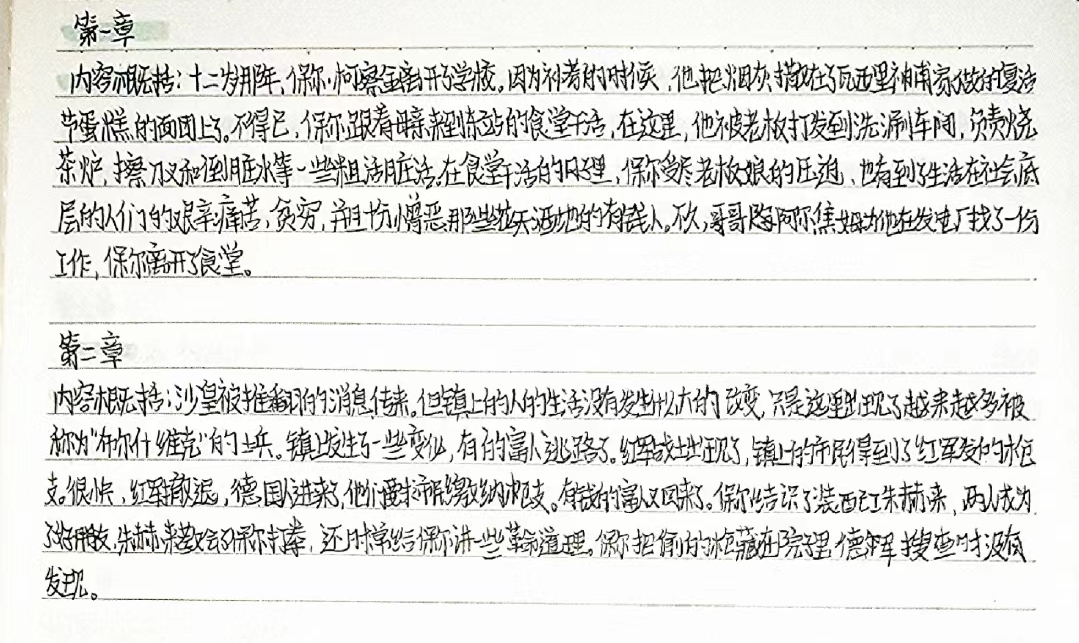 第一章
内容概括：十二岁那年，保尔·柯察金离开了学校。因为补考的时候，他把烟灰撒在了瓦西里神甫家做的复活
节蛋糕的面团上了。不得已，保尔跟着母亲来到车站的食堂干活，在这里，他被老板打发到洗涮车间，负责烧
茶炉，擦刀叉和倒脏水等一些粗活脏活。在食堂干活的日子里，保尔受尽老板娘的压迫，也看到了生活在社会底
层的人们的艰辛痛苦，贫穷，并且十分憎恶那些花天酒地的有钱人。不久，哥哥阿尔焦姆帮他在发电厂找了一份
工作，保尔离开了食堂。
第二章
内容概括：沙皇被推翻的消息传来。但镇上的人的生活没有发生什么大的改变，只是这里出现了越来越多被
称为“布尔什维克”的士兵。镇上发生了一些变化，有的富人逃路了。红军战士出现了，镇上的市民得到了红军发的枪
支。很快，红军撤退，德国人进来了，他们要求市民缴纳枪支。有钱的富人又回来了。保尔结识了装配工朱赫来，两人成为
了好朋友，朱赫来教会了保尔打拳，还时常给保尔讲一些革命道理。保尔把偷的枪藏在院子里，德军搜查时才没有
发现。